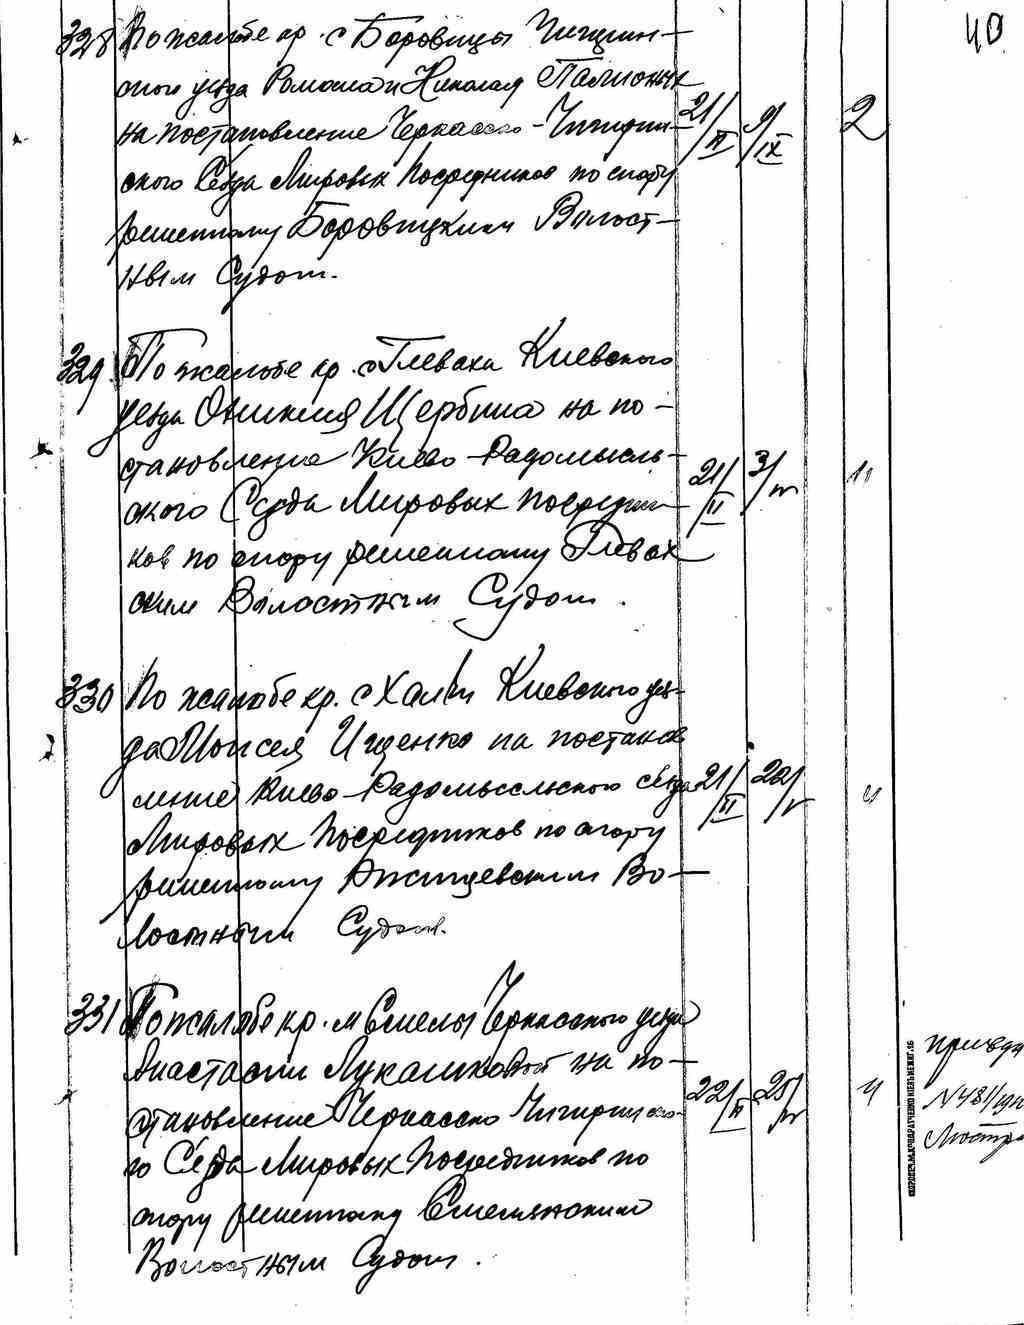 40
328 По жалобе кр. с Боровицы Чигирин-
ского уезда Романа и Николая
на постановление Черкасско-Чигирин- 21/II 9/IX 2
ского Съезда Мировых Посредников по спору
решенному Боровицким Волост-
ным Судом.
329 По жалобе кр. с Глеваха Киевского
уезда Щербина на по-
становление Киево-Радомысль- 21/II 3/IV
ского Съезда Мировых Посредни-
ков по спору решенному Глевах
ским Волостным Судом.
330 По жалобе кр. с Киевского уез-
да Моисея Ищенко на постанов
ление Киево-Радомысльского съезда 21/II 22/V
Мировых Посредников по спору
решенному Во-
лостным Судом.
331 По жалобе кр. м Смелы Черкасского уезда
Анастасии Лукашковой на по-
становление Черкасско Чигиринско- 22/II 25/IV 4
го Съезда Мировых Посредников по
спору решенному Смелянским
Волостным Судом.
N 481